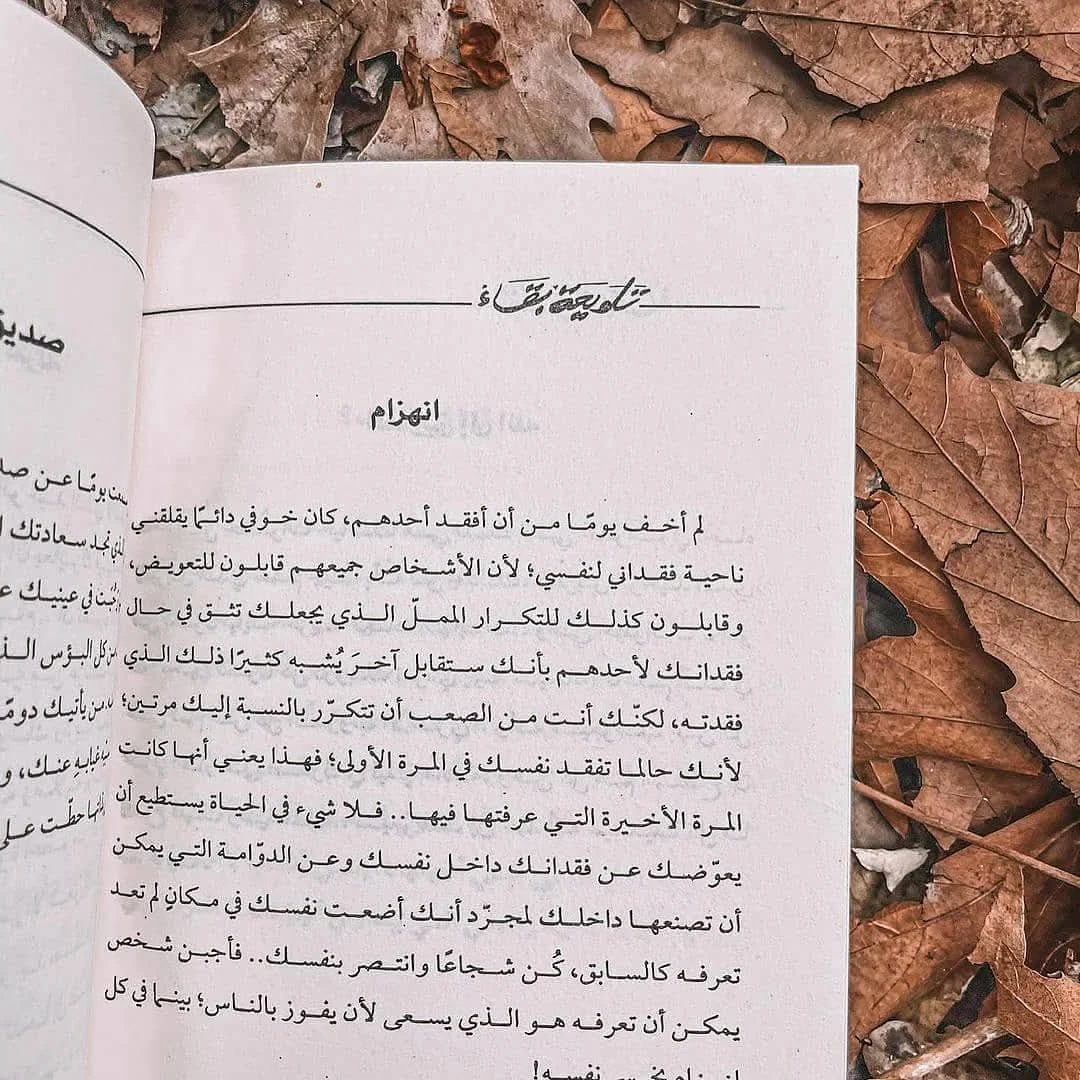 تلويحة بقاء
انهزام
لم أخف يومًا من أن أفقد أحدهم، كان خوفي دائمًا يقلقني
ناحية فقداني لنفسي؛ لأن الأشخاص جميعهم قابلون للتعويض،
وقابلون كذلك للتكرار المملّ الذي يجعلك تثق في حال
فقدانك لأحدهم بأنك ستقابل آخرَ يُشبه كثيرًا ذلك الذي
فقدته، لكنّك أنت من الصعب أن تتكرّر بالنسبة إليك مرتين؛
لأنك حالما تفقد نفسك في المرة الأولى؛ فهذا يعني أنها كانت
المرة الأخيرة التي عرفتها فيها.. فلا شيء في الحياة يستطيع أن
يعوّضك عن فقدانك داخل نفسك وعن الدوّامة التي يمكن
أن تصنعها داخلك لمجرّد أنك أضعت نفسك في مكانٍ لم تعد
تعرفه كالسابق، كُن شجاعًا وانتصر بنفسك.. فأجبن شخص
يمكن أن تعرفه هو الذي يسعى لأن يفوز بالناس؛ بينما في كل
نفسه!
يومًا عن
نجد سعادتك
في عينيك
كل البؤس
من يأتيك دومًا
غيابهِ عنك، و
حطّت على